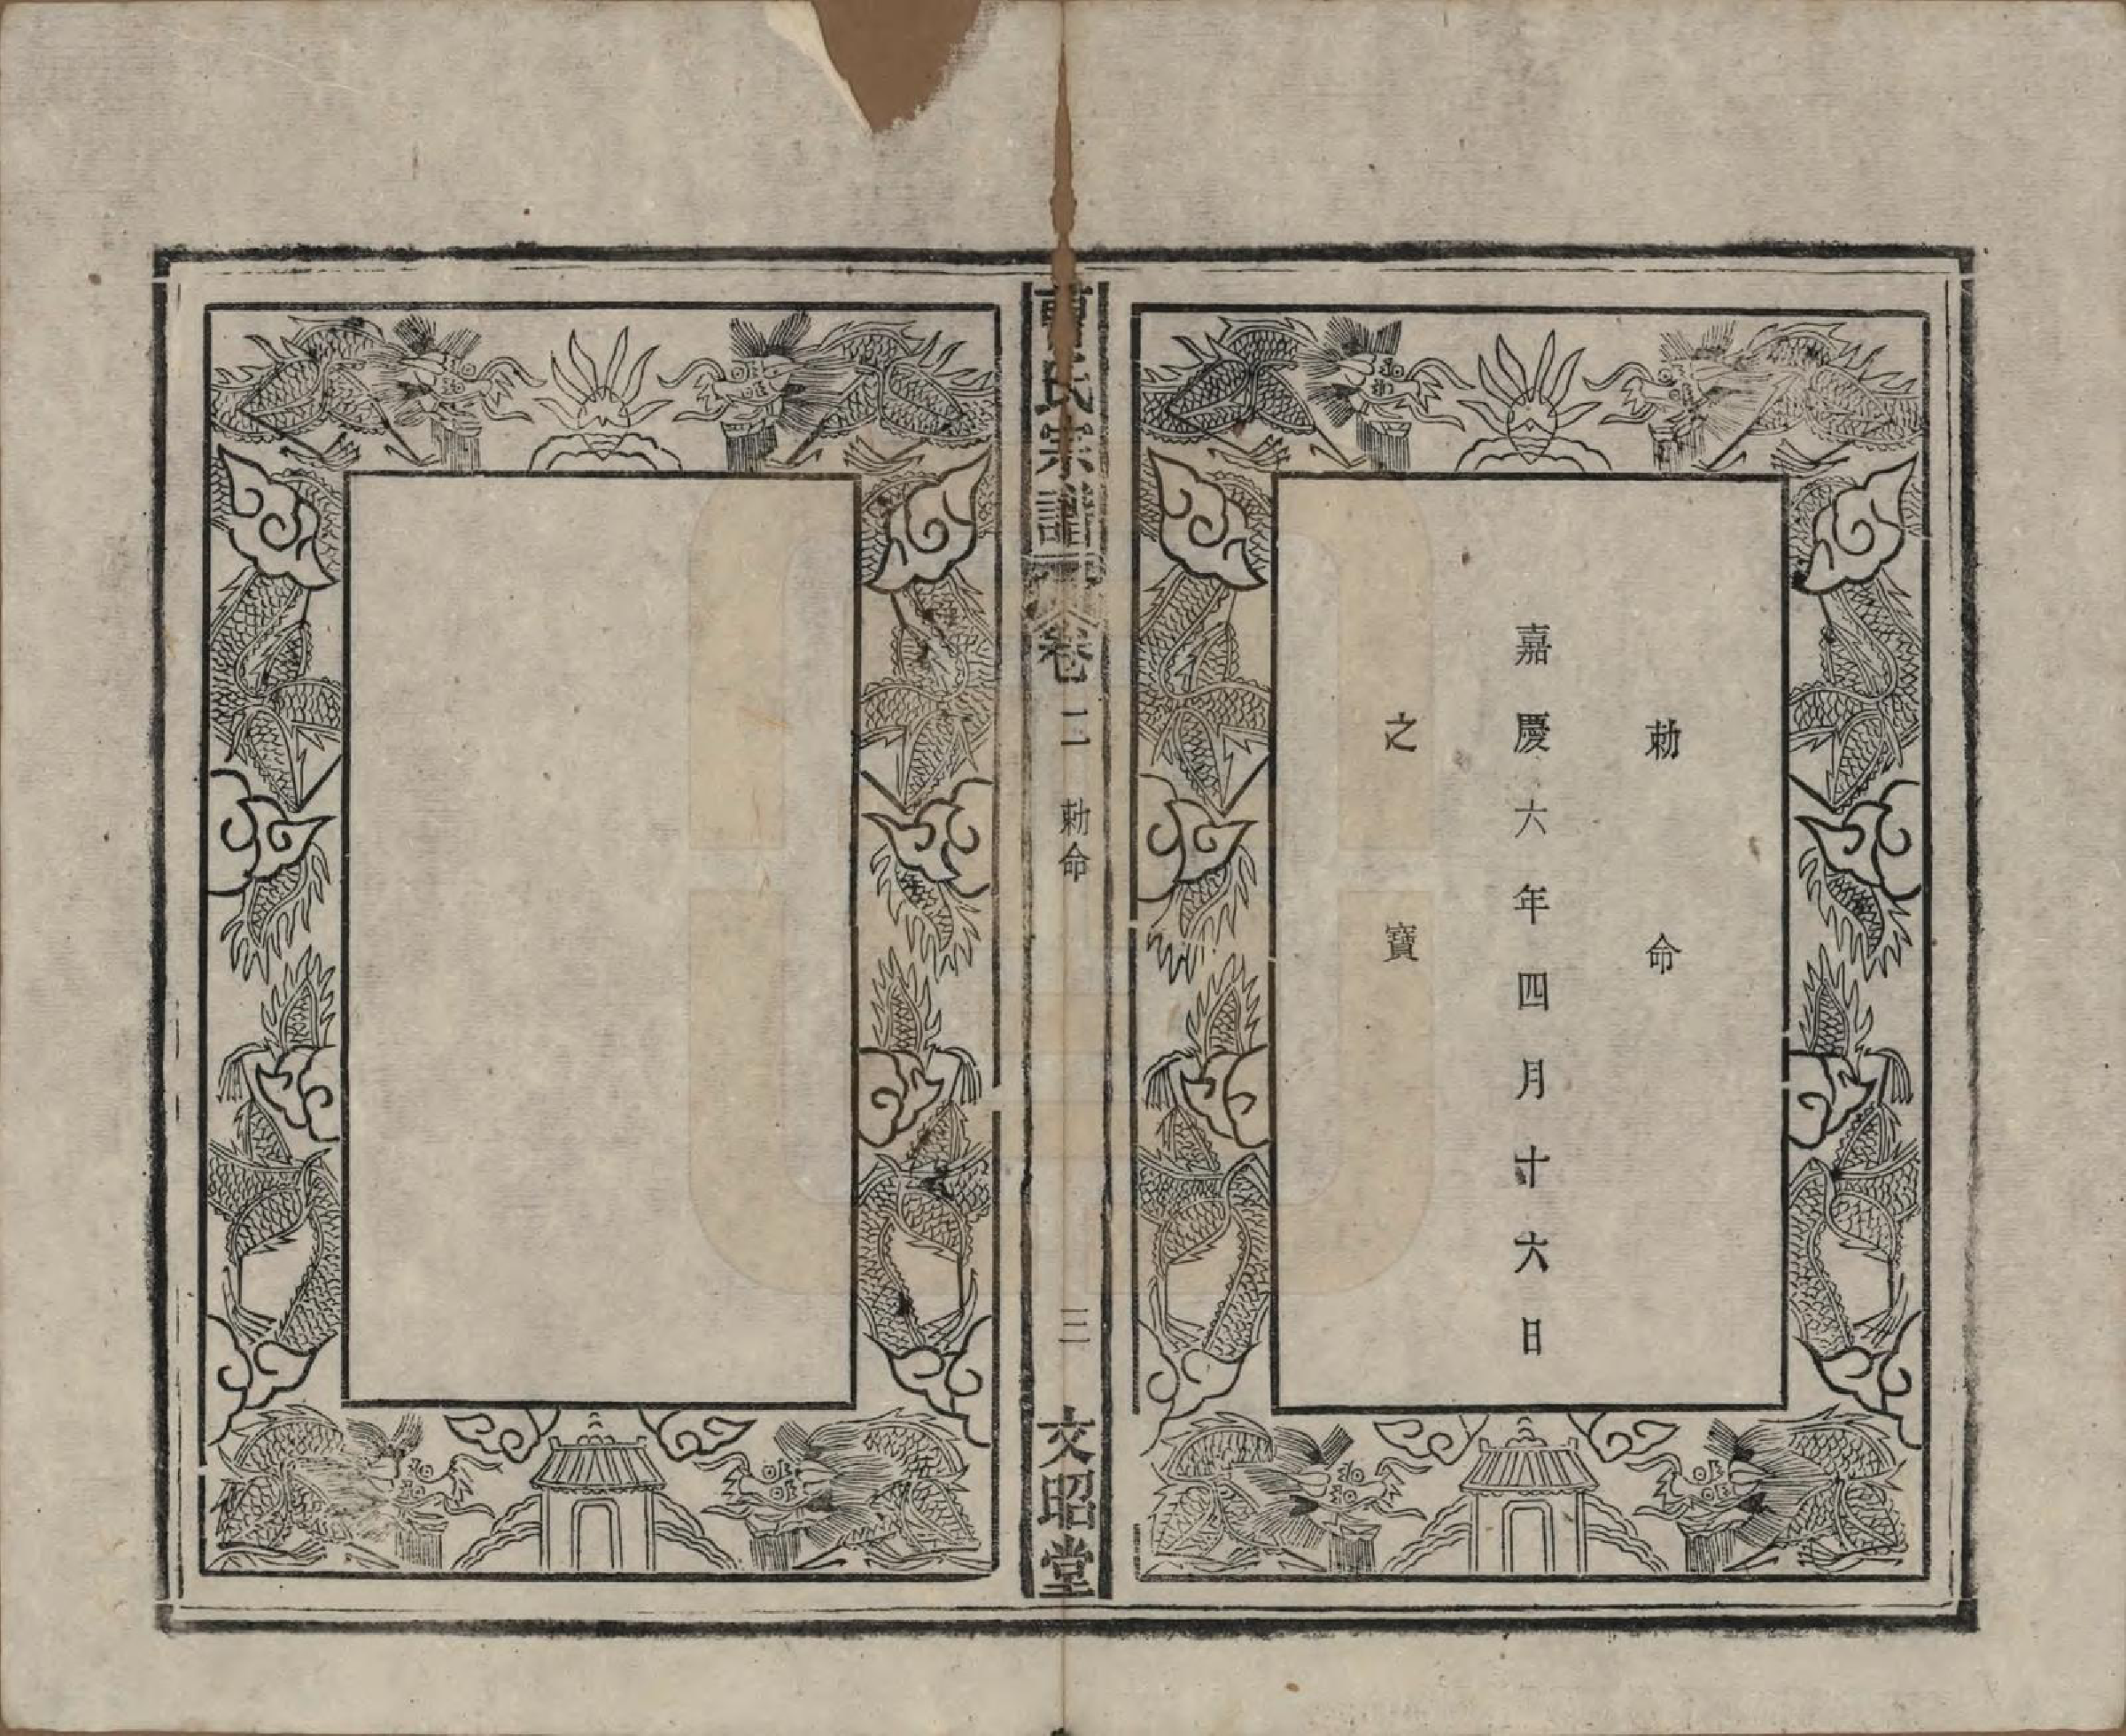 勅命
嘉慶六年四月十六日
之寶
曹氏宗譜
卷二 勅命 三
文昭堂